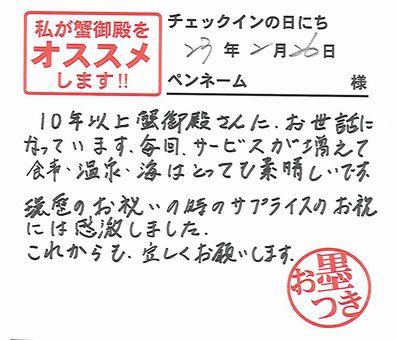 私が蟹御殿を
オススメ
します!!
チェックインの日にち
23年2月26日
ペンネーム 様
10年以上蟹御殿さんに、お世話に
なっています、毎回、サービスが増えて
食事・温泉・海はとっても素晴しいです
還暦のお祝いの時のサプライズのお祝
には感激しました。
これからも、宜しくお願いします。
お墨つき